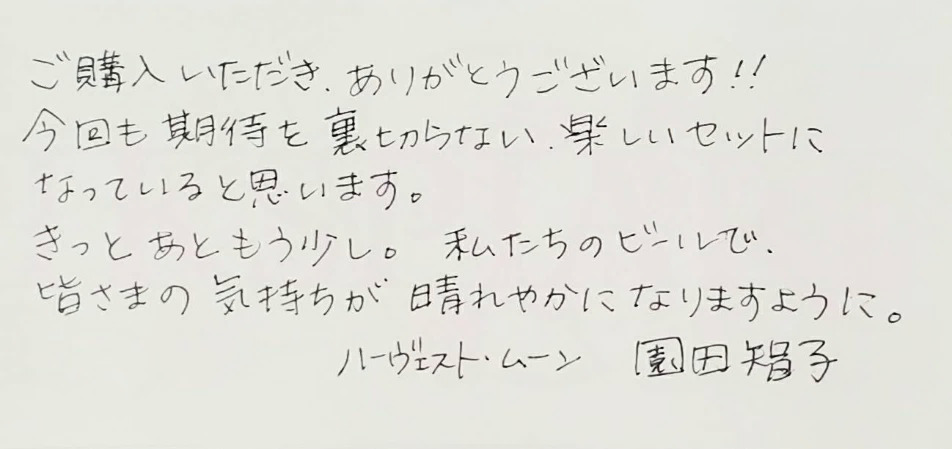 ご購入いただき、ありがとうございます!!
今回も期待を裏切らない、楽しいセットに
なっていると思います。
きっとあともう少し。私たちのビールで、
皆さまの気持ちが晴れやかになりますように。
ハーヴェスト・ムーン 園田智子